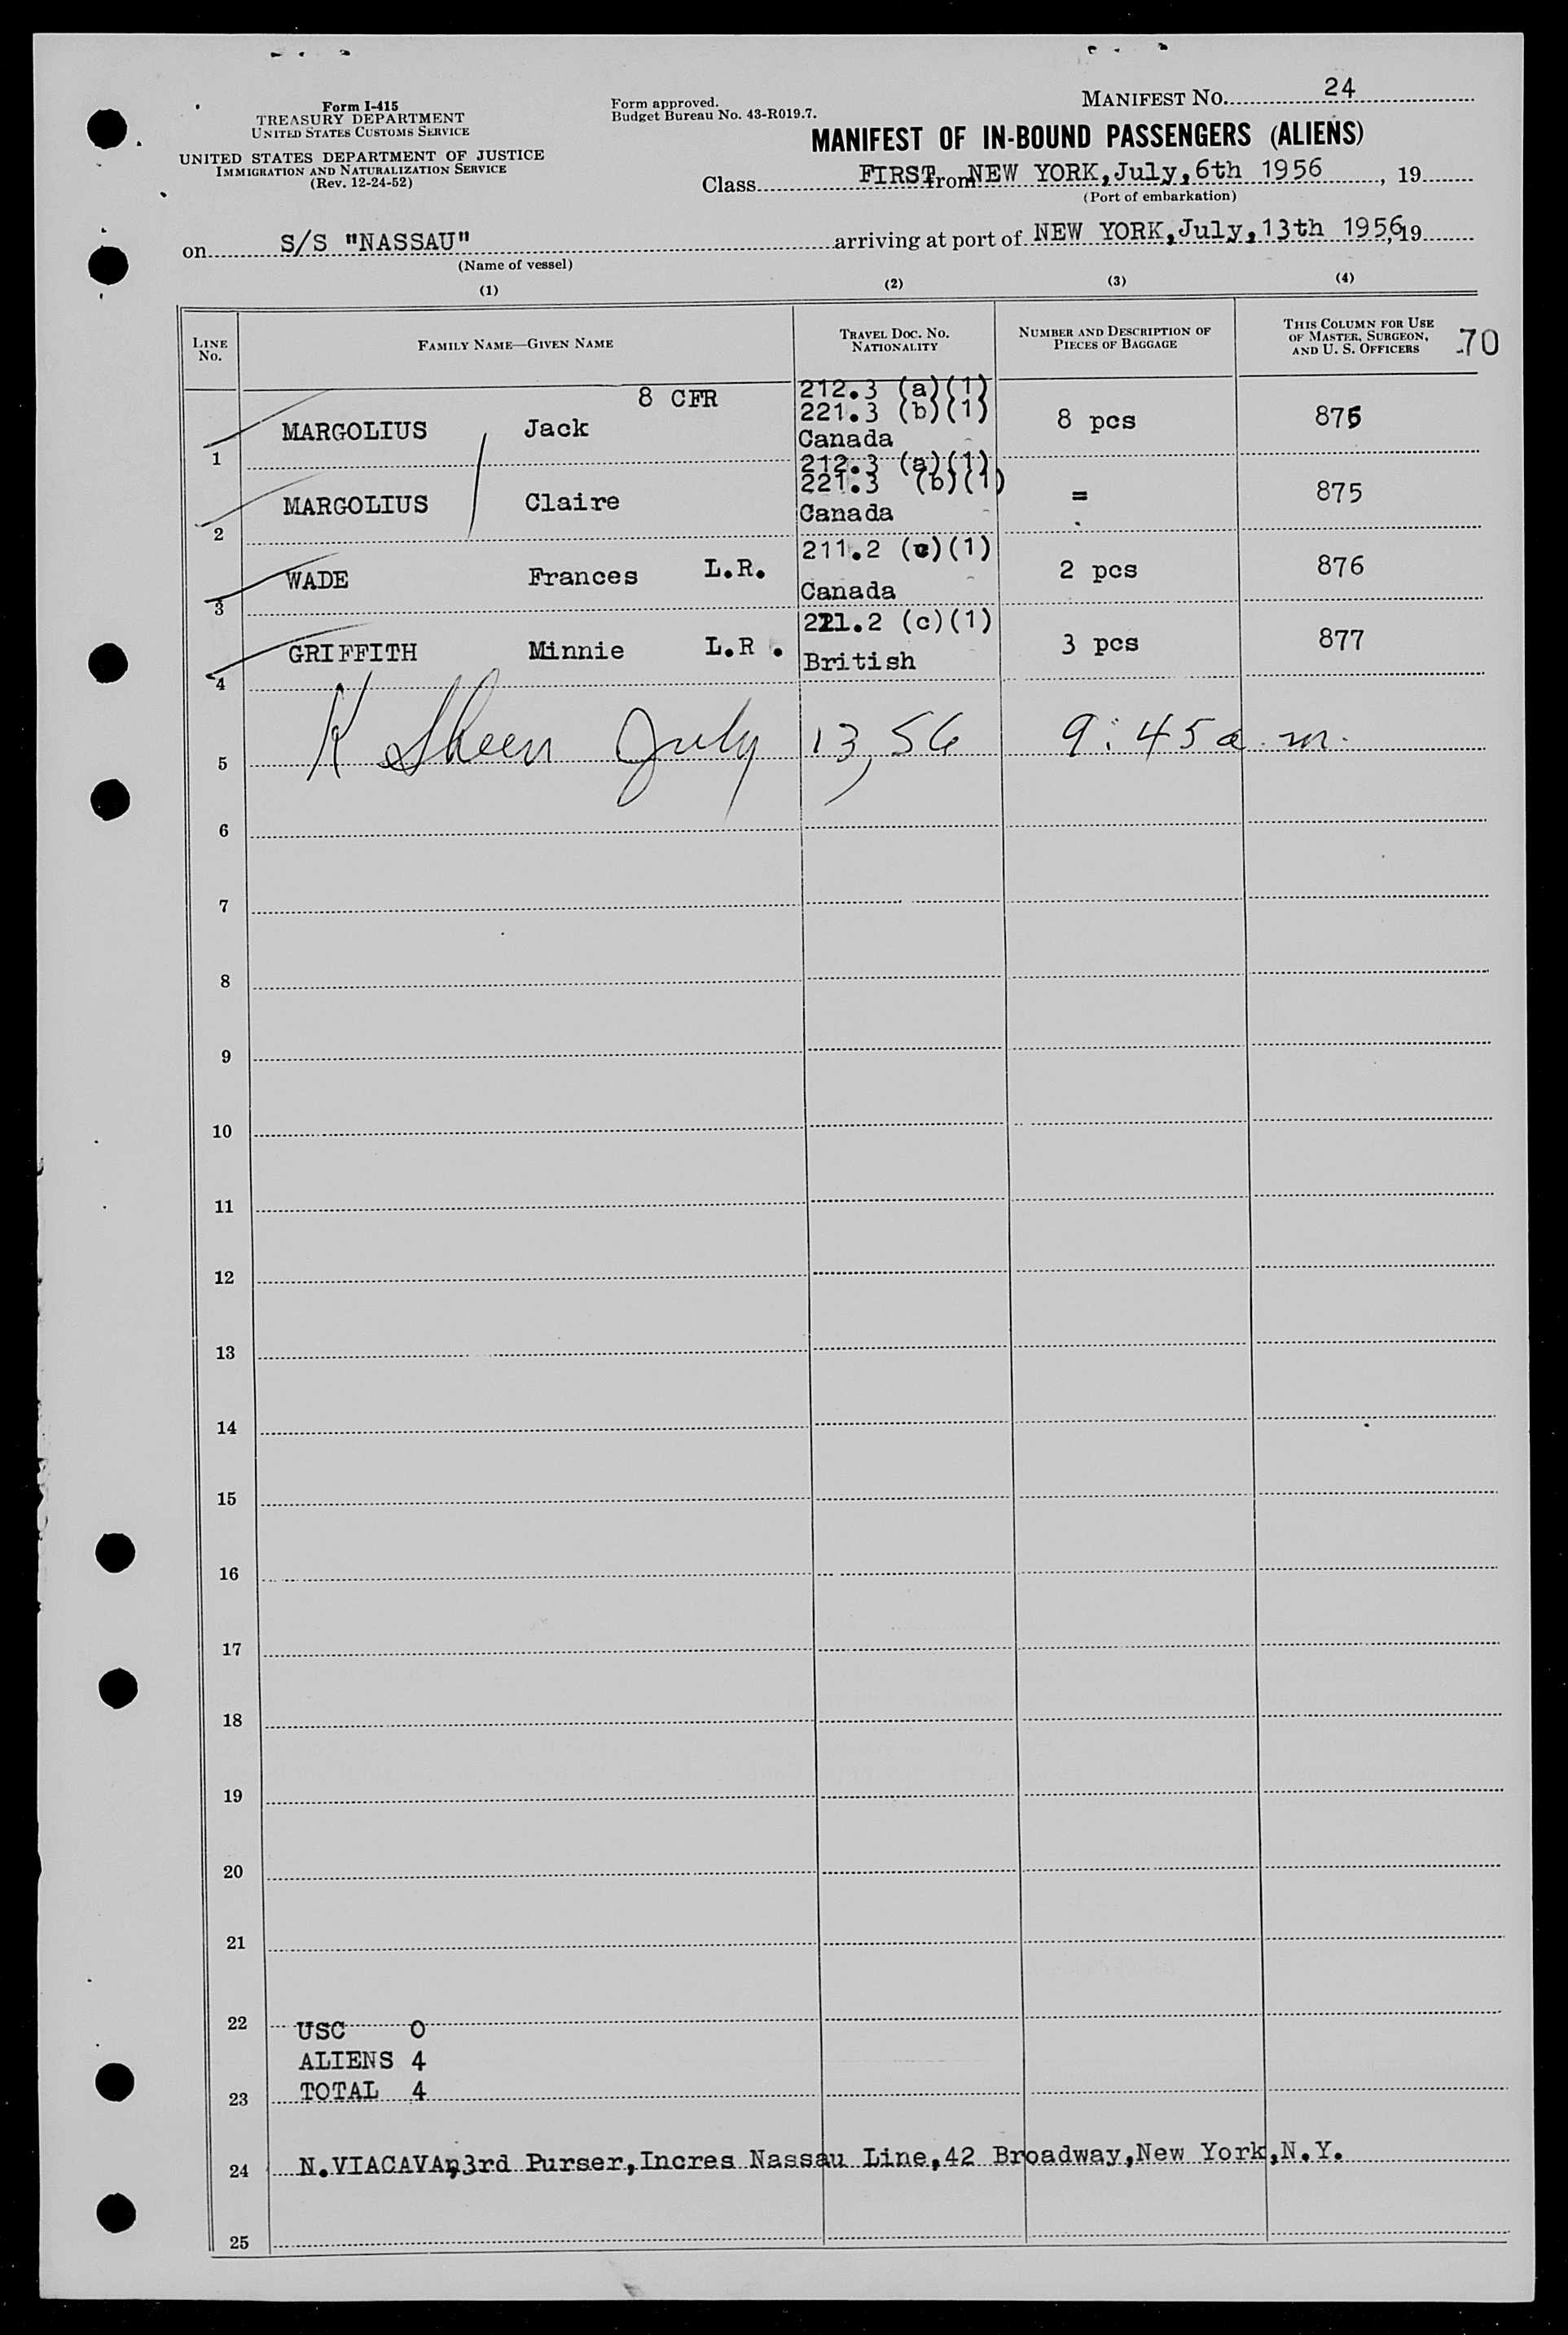 Form I-415
TREASURY DEPARTMENT
UNITED STATES CUSTOMS SERVICE
UNITED STATES DEPARTMENT OF JUSTICE
IMMIGRATION AND NATURALIZATION SERVICE
(Rev. 12-24-52)
Form approved.
Budget Bureau No. 43-R019.7.
MANIFEST NO. 24
MANIFEST OF IN-BOUND PASSENGERS (ALIENS)
Class FIRST from NEW YORK,July,6th 1956, 19
(Port of embarkation)
on S/S "NASSAU" arriving at port of NEW YORK,July,13th 1956,19
(Name of vessel)
(1) (2) (3) (4)
LINE NO. FAMILY NAME—GIVEN NAME TRAVEL DOC. NO. NATIONALITY NUMBER AND DESCRIPTION OF PIECES OF BAGGAGE THIS COLUMN FOR USE OF MASTER, SURGEON, AND U. S. OFFICERS
70
8 CFR 212.3 (a)(1)
221.3 (b)(1)
1 MARGOLIUS Jack Canada 8 pcs 875
212.3 (a)(1)
221.3 (b)(1)
2 MARGOLIUS Claire Canada = 875
211.2 (c)(1)
3 WADE Frances L.R. Canada 2 pcs 876
211.2 (c)(1)
4 GRIFFITH Minnie L.R. British 3 pcs 877
5 K Sheen July 13, 56 9:45 a.m.
6
7
8
9
10
11
12
13
14
15
16
17
18
19
20
21
22 USC 0
ALIENS 4
23 TOTAL 4
24 N.VIACAVA,3rd Purser,Incres Nassau Line,42 Broadway,New York,N.Y.
25